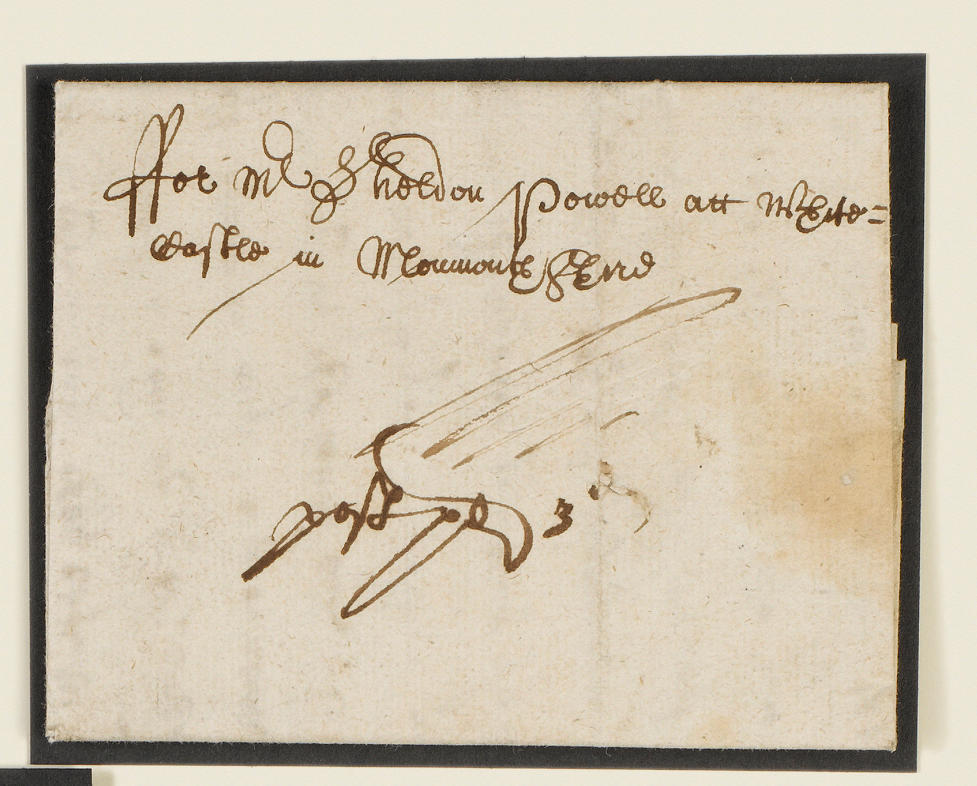 ffor Mr Sheldon Powell att White=
Castle in Monmouth Shire
post pd 3d